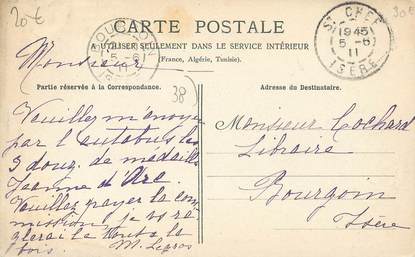 20€
30€
CARTE POSTALE
A UTILISER SEULEMENT DANS LE SERVICE INTÉRIEUR
(France, Algérie, Tunisie).
ST CHEF
1945
5-6
11
ISÈRE
5-6
11
Partie réservée à la Correspondance.
Adresse du Destinataire.
38
Monsieur
Veuillez m'envoyer
par l'autobus les
3 douz. de médailles
Jeanne d'Arc.
Veuillez payer la com
mission, je vs ré
glerai le tout à la
fois.
M. Legros
Monsieur Cochard
Libraire
Bourgoin
Isère